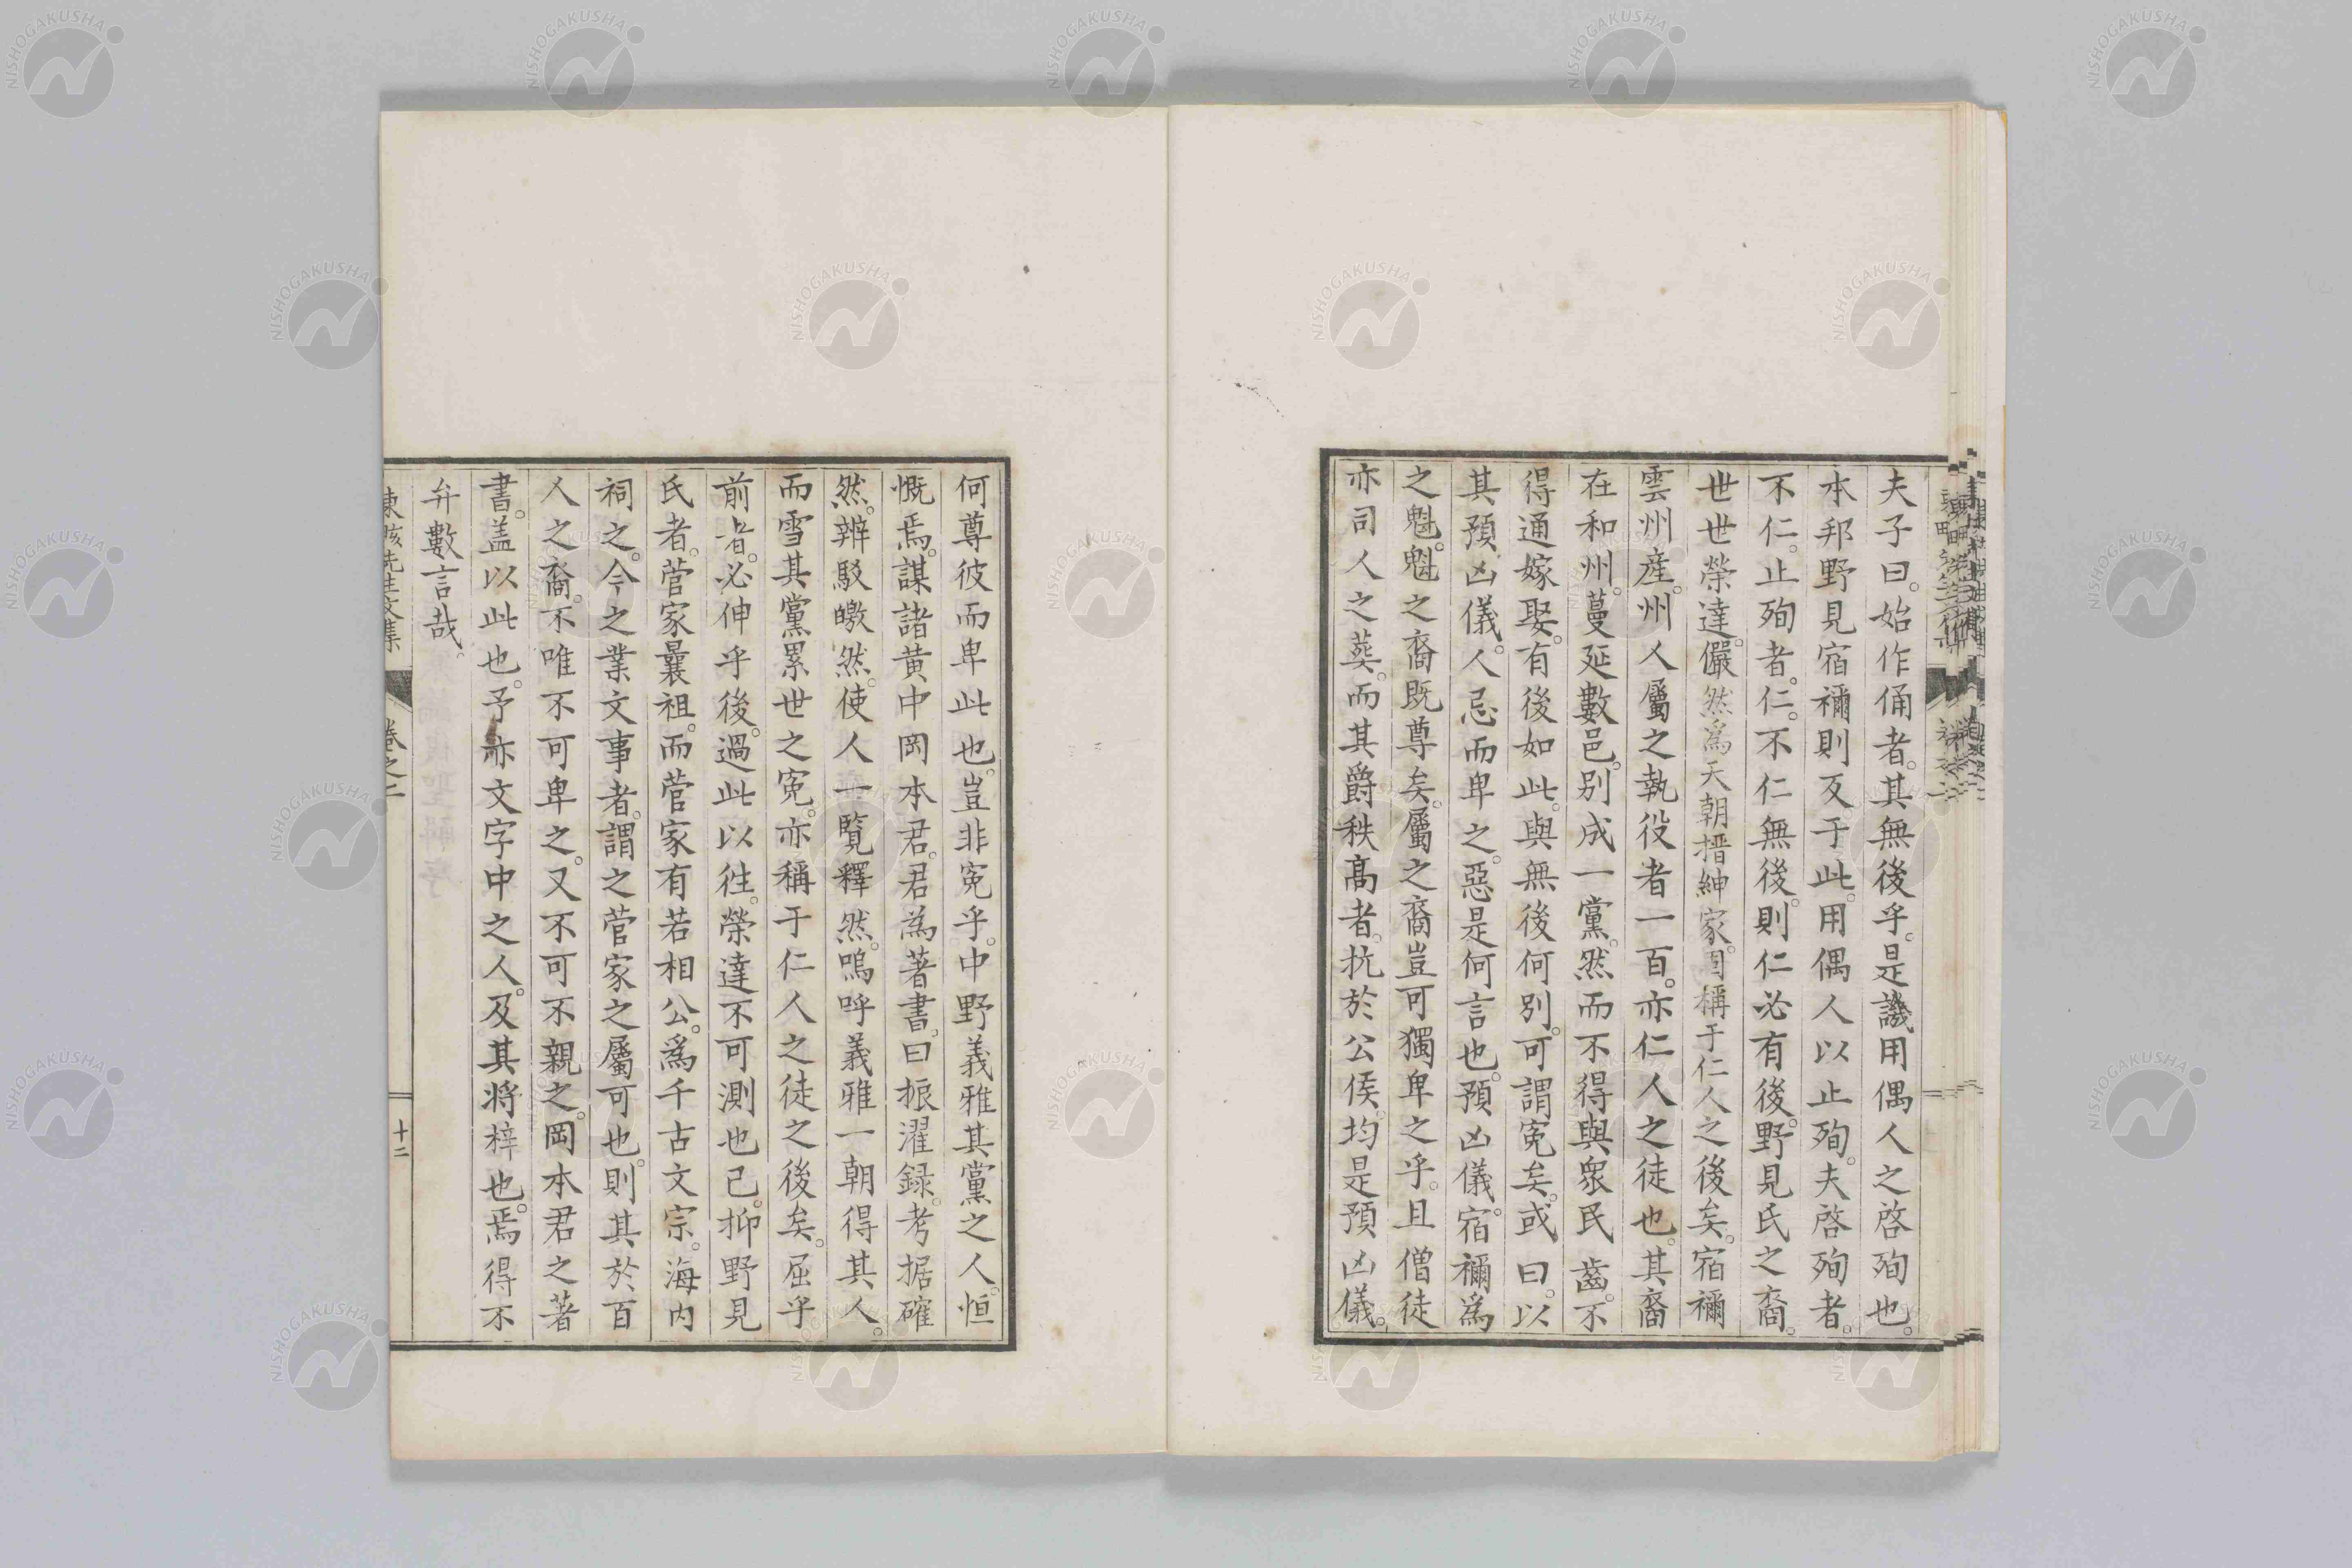 夫子曰。始作俑者。其無後乎。是譏用偶人之啓殉也。
本邦野見宿禰則反于此。用偶人以止殉。夫啓殉者。
不仁。止殉者。仁。不仁無後。則仁必有後。野見氏之裔。
世世榮達。儼然爲天朝搢紳家。固稱于仁人之後矣。宿禰
雲州産。州人屬之執役者一百。亦仁人之徒也。其裔
在和州。蔓延數邑。別成一黨。然而不得與衆民齒。不
得通嫁娶。有後如此。與無後何別。可謂寃矣。或曰。以
其預凶儀。人忌而卑之。惡是何言也。預凶儀。宿禰爲
之魁。魁之裔既尊矣。屬之裔豈可獨卑之乎。且僧徒
亦司人之葬。而其爵秩髙者。抗於公侯。均是預凶儀。
何尊彼而卑此也。豈非寃乎。中野義雅其黨之人。恒
慨焉。謀諸黄中岡本君。君為著書。曰振濯録。考据確
然。辨駁皦然。使人一覽釋然。嗚呼義雅一朝得其人。
而雪其黨累世之寃。亦稱于仁人之徒之後矣。屈乎
前者。必伸乎後。過此以往。榮達不可測也已。抑野見
氏者。菅家曩祖。而菅家有若相公。爲千古文宗。海内
祠之。今之業文事者。謂之菅家之屬可也。則其於百
人之裔。不唯不可卑之。又不可不親之。岡本君之著
書。盖以此也。予亦文字中之人。及其将梓也。焉得不
弁數言哉。
先生文集
卷之二
十二
NISHOGAKUSHA